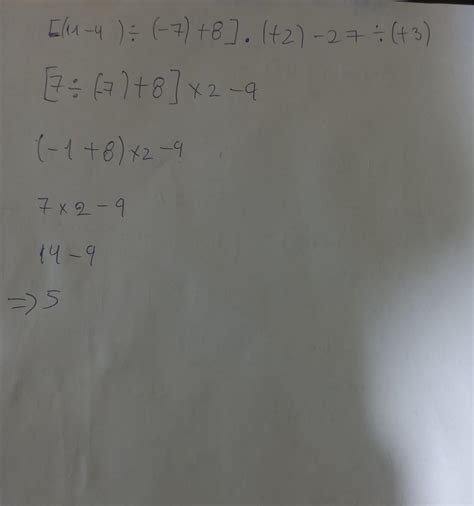 [(11-4) ÷ (-7) +8] . (+2) - 27 ÷ (+3)
[7 ÷ (-7) +8] × 2 - 9
(-1 +8) ×2 -9
7 × 2 - 9
14 - 9
⇒ 5